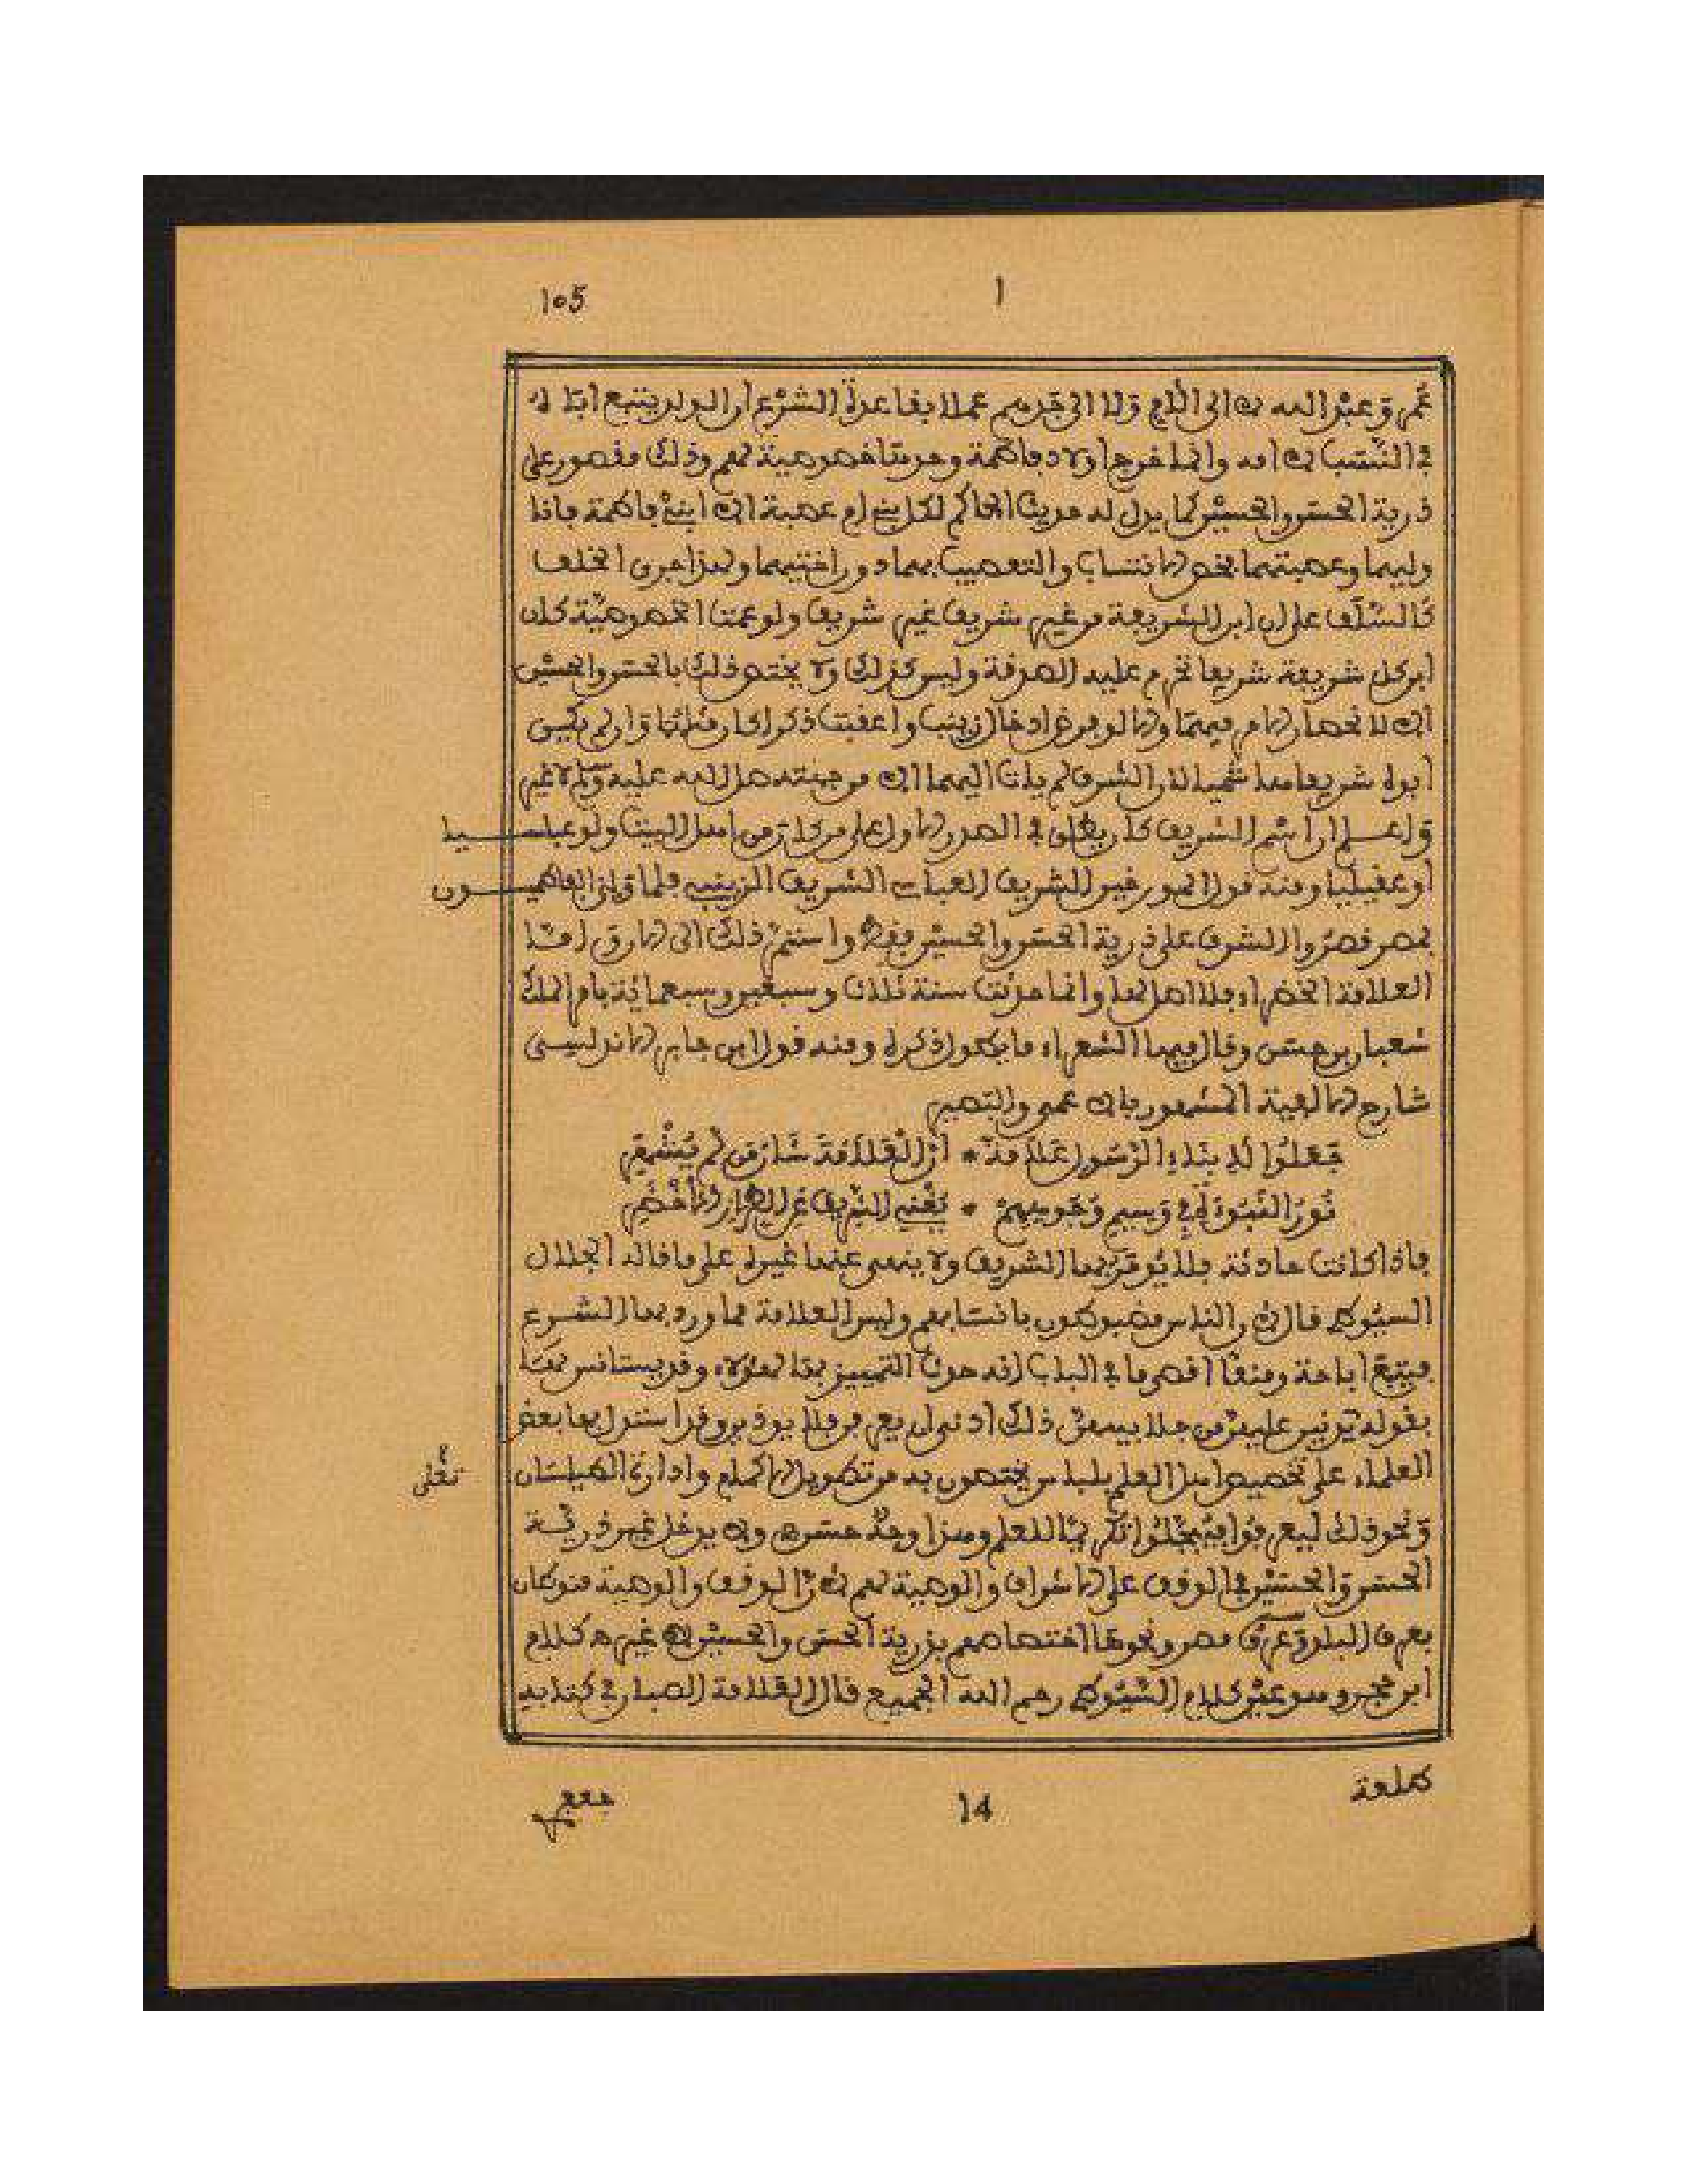 105 1
عمر وعبد الله لا الى الام ولا الى جدهم عملا بقاعدة الشرع ان الولد يتبع اباه
في النسب لا امه وانما خرج اولاد فاطمة وحدها خصوصية لهم وذلك مقصور على
ذرية الحسن والحسين كما يدل له حديث الحاكم لكل بني ام عصبة الا ابني فاطمة فانا
وليهما وعصبتهما فخص الانتساب والتعصيب بهما دون اختيهما ولهذا جرى الخلف
كالسلف على ان ابن الشريفة من غير شريف غير شريف ولو عمت الخصوصية كان
ابن كل شريفة شريفا تحرم عليه الصدقة وليس كذلك ولا يختص ذلك بالحسن والحسين
الا لانحصار الامر فيهما والا لو فرض ان خال زينب واعقبت ذكرا كان مثلهما وان لم يكن
ابوه شريفا هاشميا لان الشرف لم يات اليهما الا من جهته صلى الله عليه وسلم لا غير
واعلم ان اسم الشريف كان يطلق في الصدر الاول على من كان من اهل البيت ولو عباسيا
او عقيليا ومنه قول المورخين الشريف العباسي الشريف الزينبي فلما ولي الفاطميون
بمصر قصروا الشرف على ذرية الحسن والحسين فقط واستمر ذلك الى الان واما
العلامة الخضراء فلا اصل لها وانما حدثت سنة ثلاث وسبعين وسبعمائة بامر الملك
شعبان بن حسن وقال فيها الشعراء ما يطول ذكره ومنه قول ابن جابر الاندلسي
شارح الالفية المشهور بالاعمى والبصير
جَعَلُوا لِأَبْنَاءِ الرَّسُولِ عَلَامَةً * أنّ الْعَلَامَةَ شَأْنُ مَن لَّمْ يُشْهَرِ
نُورُ النُّبُوَّةِ فِي وَسِيمِ وُجُوهِهِمْ * يُغْنِي الشَّرِيفَ عَنِ الطِّرَازِ الْأَخْضَرِ
فاذا كانت حادثة فلا يُؤمر بها الشريف ولا ينهى عنها غيره على ما قاله الجلال
السيوطي قال لان الناس مضبوطون بانسابهم وليس العلامة مما ورد بها الشرع
فيتبع اباحة ومنعا اقصى ما في الباب انه حدث التمييز بها لهؤلاء وقد يستانس لها
بقوله يدنين عليهن من جلابيبهن ذلك ادنى ان يعرفن فلا يوذين وقد استدل بها بعض
العلماء على تخصيص اهل العلم بلباس يختصون به من تطويل الاكمام وادارة الطيلسان
ونحو ذلك ليعرفوا فيبجلوا تكريما للعلم وهذا وجه حسن ولا يدخل غير ذرية
الحسن والحسين في الوقف على الاشراف والوصية لهم لان الوقف والوصية منوطان
بعرف البلد وعرف مصر ونحوها اختصاصهم بذرية الحسن والحسين لا غير ه كلام
ابن حجر وهو عين كلام السيوطي رحم الله الجميع قال العلامة الصبان في كتابه
تعلى
14